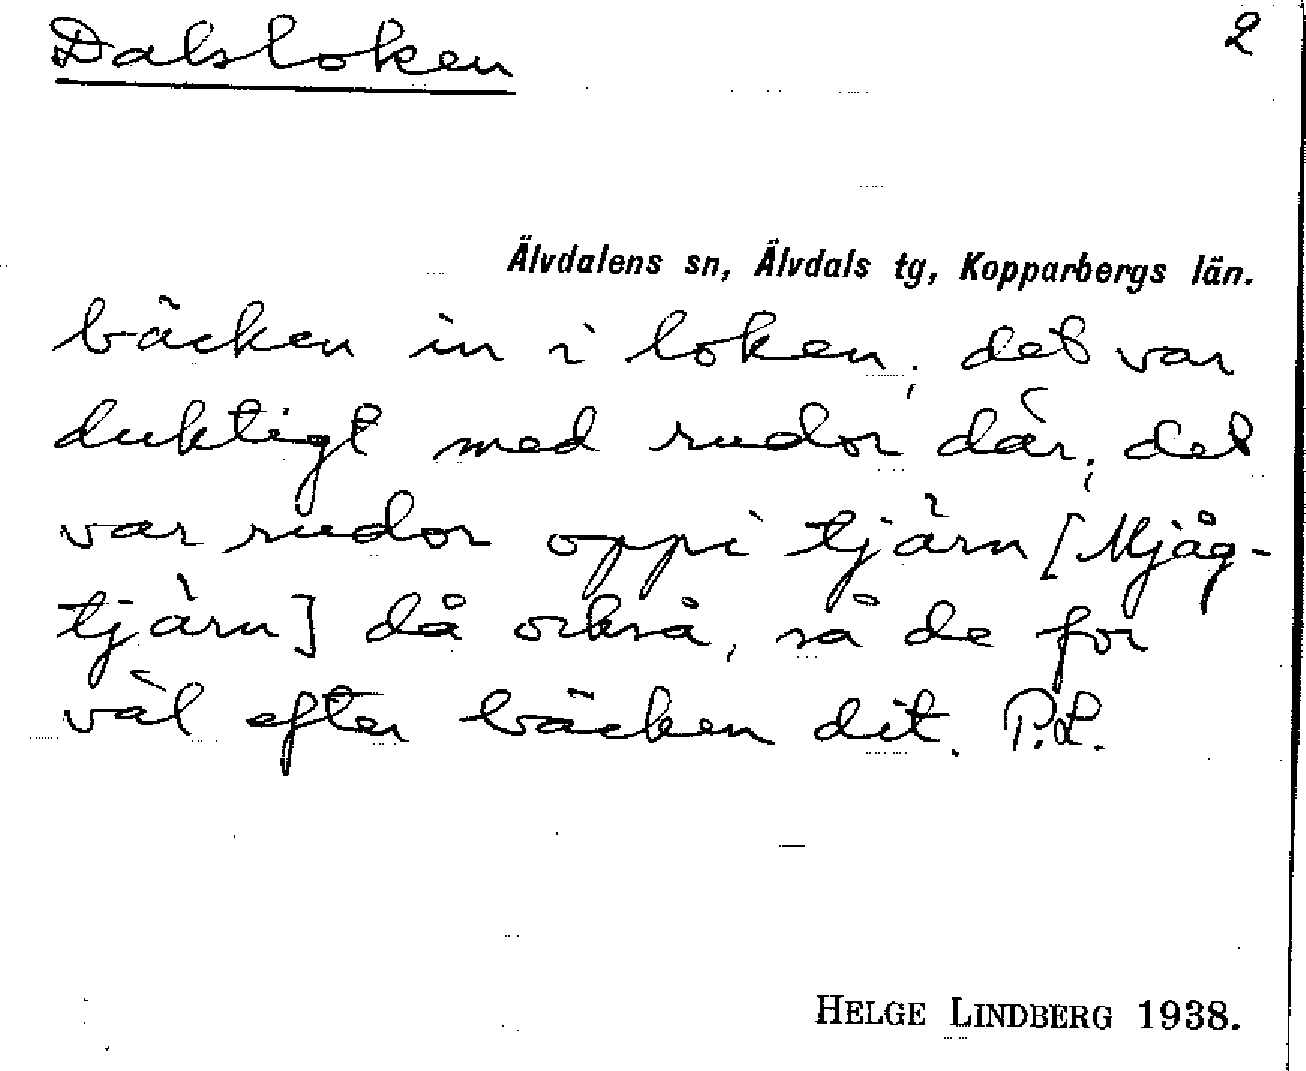 Dalsloken 2
Älvdalens sn, Älvdals tg, Kopparbergs län.
bäcken in i loken; det var
duktigt med rudor där; det
var rudor oppi tjärn [Mjåg-
tjärn] då också, så de for
väl efter bäcken dit. P.L.
HELGE LINDBERG 1938.